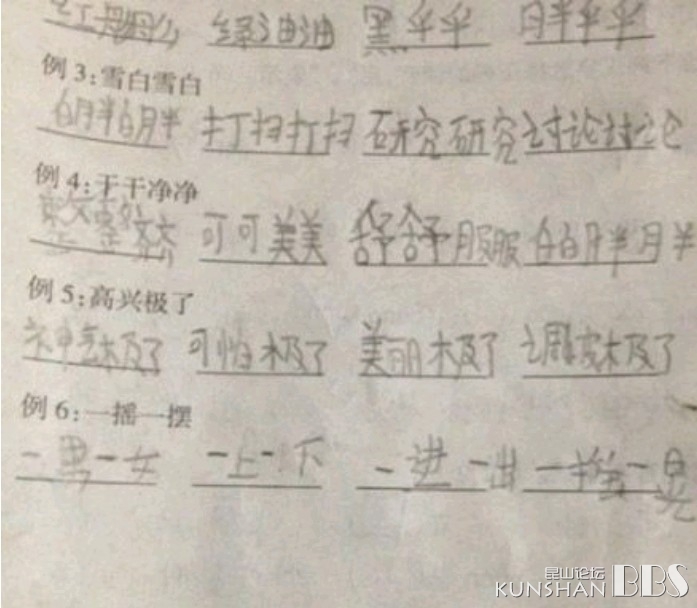 绿油油 黑乎乎 胖乎乎
例3:雪白雪白
白胖白胖 打扫打扫 研究研究 讨论讨论
例4:干干净净
可可美美 舒舒服服 白白胖胖
例5:高兴极了
神气极了 可怕极了 美丽极了 调皮极了
例6:一摇一摆
一男一女 一上一下 一进一出 一一晃
昆山论坛
KUNSHAN BBS